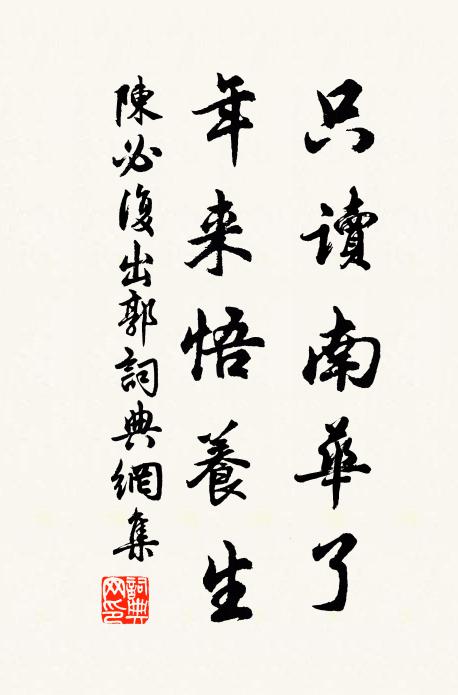 只讀南華了
年来悟養生
陳必復出郭詞典網集
詞典网印